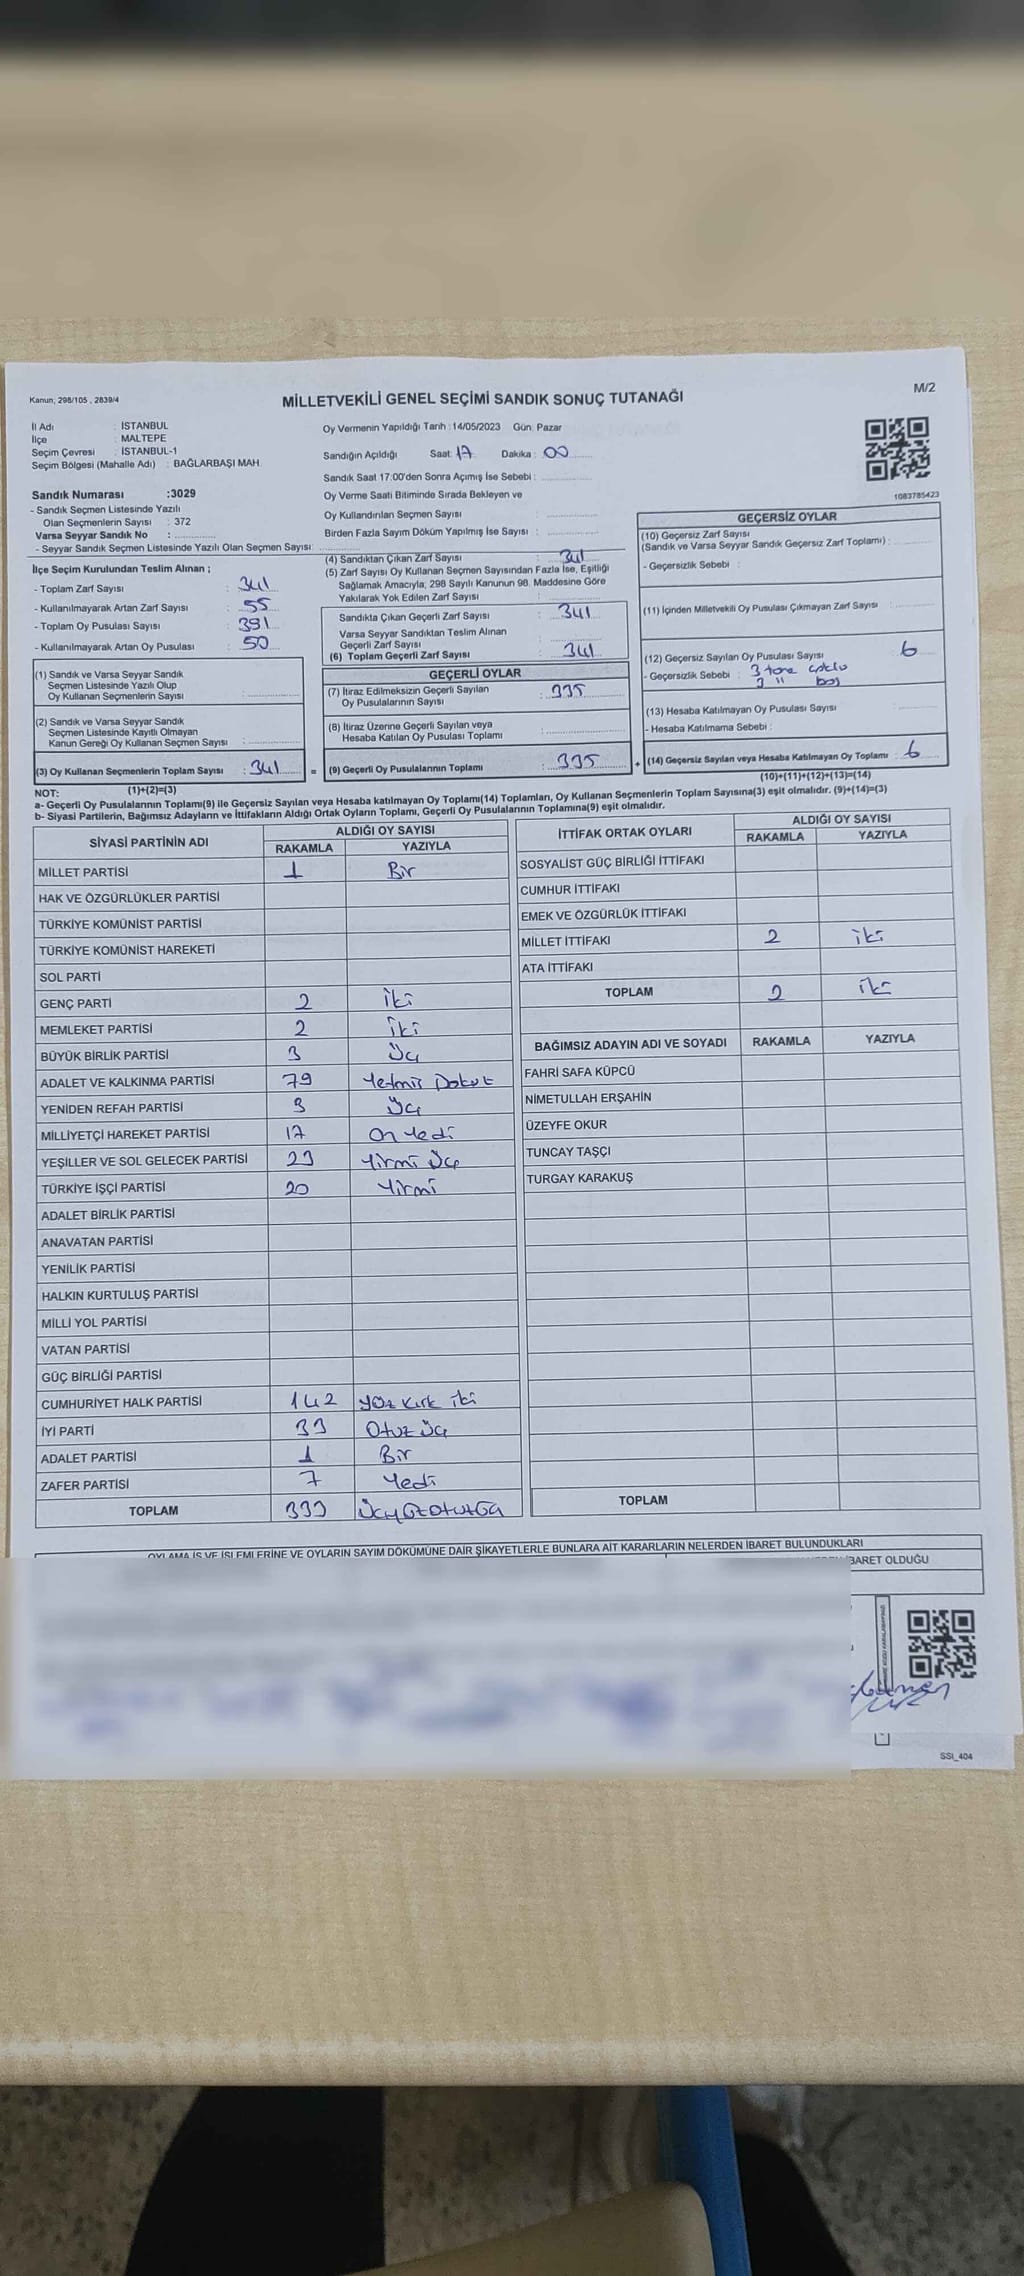 Kanun; 298/105 , 2839/4
MİLLETVEKİLİ GENEL SEÇİMİ SANDIK SONUÇ TUTANAĞI
M/2
İl Adı : İSTANBUL
İlçe : MALTEPE
Seçim Çevresi : İSTANBUL-1
Seçim Bölgesi (Mahalle Adı) : BAĞLARBAŞI MAH.
Oy Vermenin Yapıldığı Tarih : 14/05/2023 Gün: Pazar
Sandığın Açıldığı Saat: 17 Dakika : 00
Sandık Saat 17:00'den Sonra Açımış İse Sebebi :
Oy Verme Saati Bitiminde Sırada Bekleyen ve
Oy Kullandırılan Seçmen Sayısı :
Birden Fazla Sayım Döküm Yapılmış İse Sayısı :
1083785423
Sandık Numarası :3029
- Sandık Seçmen Listesinde Yazılı
Olan Seçmenlerin Sayısı : 372
Varsa Seyyar Sandık No :
- Seyyar Sandık Seçmen Listesinde Yazılı Olan Seçmen Sayısı :
İlçe Seçim Kurulundan Teslim Alınan ;
- Toplam Zarf Sayısı : 341
- Kullanılmayarak Artan Zarf Sayısı : 55
- Toplam Oy Pusulası Sayısı : 391
- Kullanılmayarak Artan Oy Pusulası : 50
(1) Sandık ve Varsa Seyyar Sandık
Seçmen Listesinde Yazılı Olup
Oy Kullanan Seçmenlerin Sayısı :
(2) Sandık ve Varsa Seyyar Sandık
Seçmen Listesinde Kayıtlı Olmayan
Kanun Gereği Oy Kullanan Seçmen Sayısı :
(3) Oy Kullanan Seçmenlerin Toplam Sayısı : 341
(1)+(2)=(3)
(4) Sandıktan Çıkan Zarf Sayısı : 341
(5) Zarf Sayısı Oy Kullanan Seçmen Sayısından Fazla İse, Eşitliği
Sağlamak Amacıyla; 298 Sayılı Kanunun 98. Maddesine Göre
Yakılarak Yok Edilen Zarf Sayısı :
Sandıkta Çıkan Geçerli Zarf Sayısı : 341
Varsa Seyyar Sandıktan Teslim Alınan
Geçerli Zarf Sayısı :
(6) Toplam Geçerli Zarf Sayısı : 341
GEÇERLİ OYLAR
(7) İtiraz Edilmeksizin Geçerli Sayılan
Oy Pusulalarının Sayısı : 335
(8) İtiraz Üzerine Geçerli Sayılan veya
Hesaba Katılan Oy Pusulası Toplamı :
= (9) Geçerli Oy Pusulalarının Toplamı : 335 +
GEÇERSİZ OYLAR
(10) Geçersiz Zarf Sayısı
(Sandık ve Varsa Seyyar Sandık Geçersiz Zarf Toplamı) :
- Geçersizlik Sebebi :
(11) İçinden Milletvekili Oy Pusulası Çıkmayan Zarf Sayısı :
(12) Geçersiz Sayılan Oy Pusulası Sayısı : 6
- Geçersizlik Sebebi : 3 tane çoklu
3 " boş
(13) Hesaba Katılmayan Oy Pusulası Sayısı :
- Hesaba Katılmama Sebebi :
(14) Geçersiz Sayılan veya Hesaba Katılmayan Oy Toplamı : 6
(10)+(11)+(12)+(13)=(14)
NOT:
a- Geçerli Oy Pusulalarının Toplamı(9) ile Geçersiz Sayılan veya Hesaba katılmayan Oy Toplamı(14) Toplamları, Oy Kullanan Seçmenlerin Toplam Sayısına(3) eşit olmalıdır. (9)+(14)=(3)
b- Siyasi Partilerin, Bağımsız Adayların ve İttifakların Aldığı Ortak Oyların Toplamı, Geçerli Oy Pusulalarının Toplamına(9) eşit olmalıdır.
SİYASİ PARTİNİN ADI
ALDIĞI OY SAYISI
RAKAMLA YAZIYLA
MİLLET PARTİSİ 1 Bir
HAK VE ÖZGÜRLÜKLER PARTİSİ
TÜRKİYE KOMÜNİST PARTİSİ
TÜRKİYE KOMÜNİST HAREKETİ
SOL PARTİ
GENÇ PARTİ 2 İki
MEMLEKET PARTİSİ 2 İki
BÜYÜK BİRLİK PARTİSİ 3 Üç
ADALET VE KALKINMA PARTİSİ 79 Yetmiş Dokuz
YENİDEN REFAH PARTİSİ 3 Üç
MİLLİYETÇİ HAREKET PARTİSİ 17 On Yedi
YEŞİLLER VE SOL GELECEK PARTİSİ 23 Yirmi Üç
TÜRKİYE İŞÇİ PARTİSİ 20 Yirmi
ADALET BİRLİK PARTİSİ
ANAVATAN PARTİSİ
YENİLİK PARTİSİ
HALKIN KURTULUŞ PARTİSİ
MİLLİ YOL PARTİSİ
VATAN PARTİSİ
GÜÇ BİRLİĞİ PARTİSİ
CUMHURİYET HALK PARTİSİ 142 Yüz Kırk İki
İYİ PARTİ 33 Otuz Üç
ADALET PARTİSİ 1 Bir
ZAFER PARTİSİ 7 Yedi
TOPLAM 333 ÜçyüzotuzÜç
İTTİFAK ORTAK OYLARI
ALDIĞI OY SAYISI
RAKAMLA YAZIYLA
SOSYALİST GÜÇ BİRLİĞİ İTTİFAKI
CUMHUR İTTİFAKI
EMEK VE ÖZGÜRLÜK İTTİFAKI
MİLLET İTTİFAKI 2 İki
ATA İTTİFAKI
TOPLAM 2 İki
BAĞIMSIZ ADAYIN ADI VE SOYADI RAKAMLA YAZIYLA
FAHRİ SAFA KÜPCÜ
NİMETULLAH ERŞAHİN
ÜZEYFE OKUR
TUNCAY TAŞÇI
TURGAY KARAKUŞ
TOPLAM
OYLAMA İŞ VE İŞLEMLERİNE VE OYLARIN SAYIM DÖKÜMÜNE DAİR ŞİKAYETLERLE BUNLARA AİT KARARLARIN NELERDEN İBARET BULUNDUKLARI
İBARET OLDUĞU
SSI_404